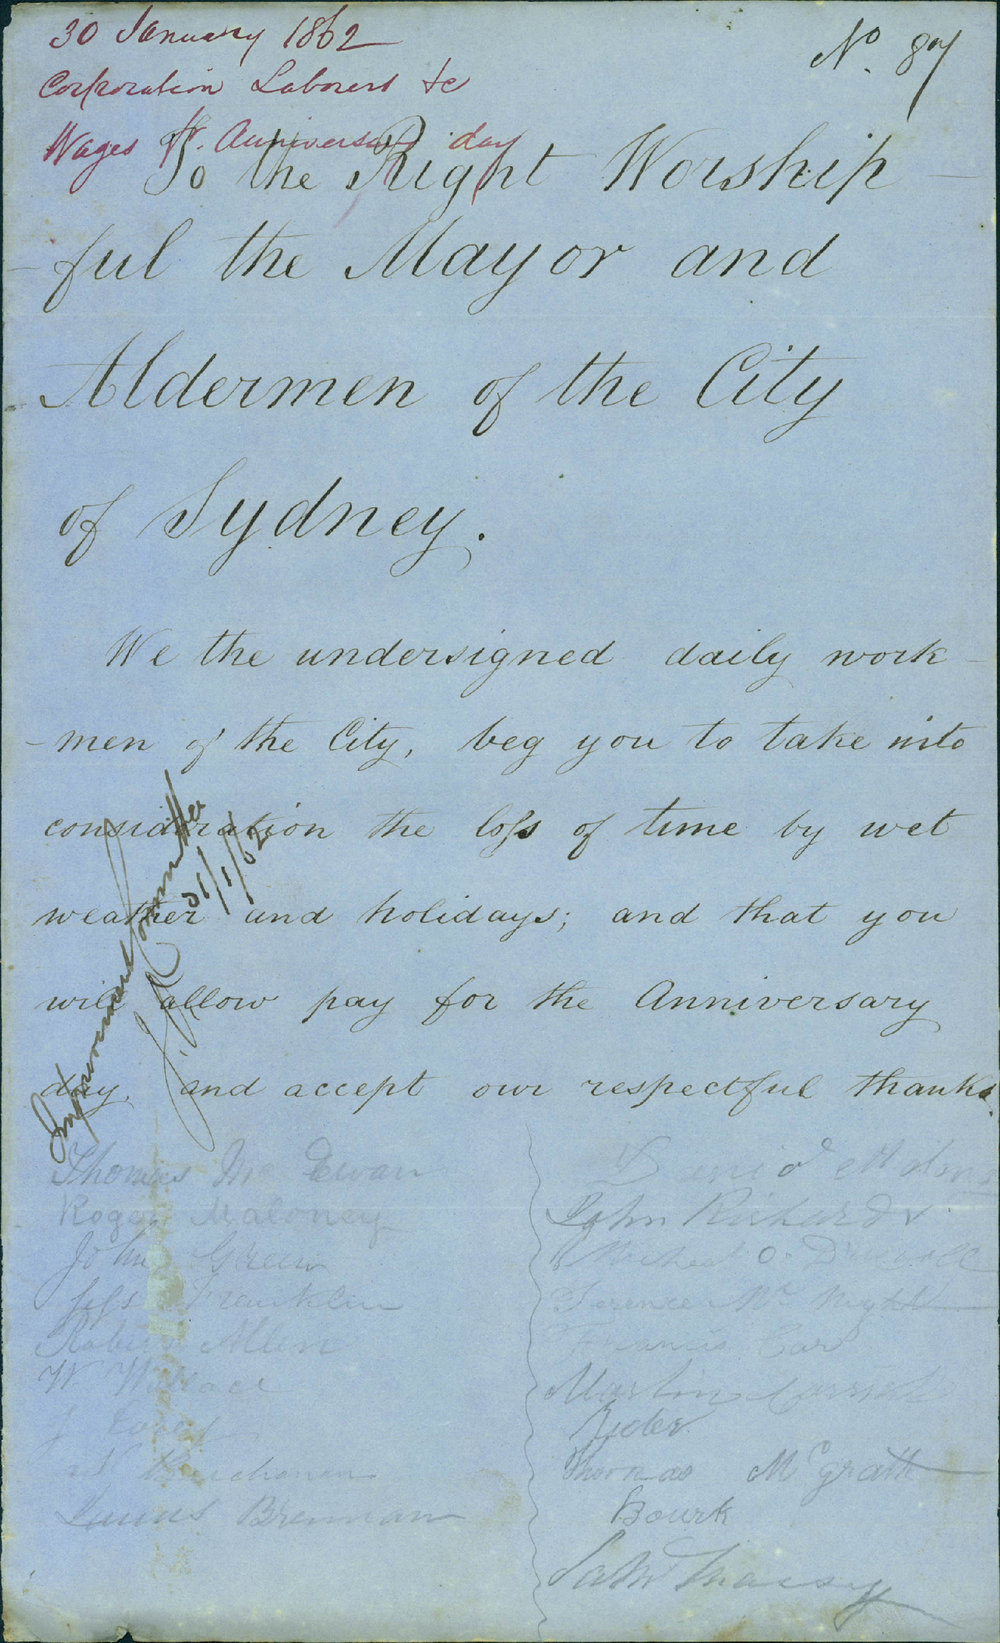 30 January 1862
Corporation Laborers &c
Wages fr. Anniversary day
No. 87
To the Right Worship
-ful the Mayor and
Aldermen of the City
of Sydney.
We the undersigned daily work-
-men of the City, beg you to take into
consideration the loss of time by wet
weather and holidays; and that you
will allow pay for the Anniversary
day, and accept our respectful thanks.
Improvement Committee
31/1/62
Thomas Mc Ewan
Roger Maloney
John Green
Franklin
Robert Allen
W Wallace
J
Buchanan
James Brennan
David
John Richards
Michael O.
Terence Mc Night
Francis Car
Martin
Rider
Thomas McGrath
Bourk